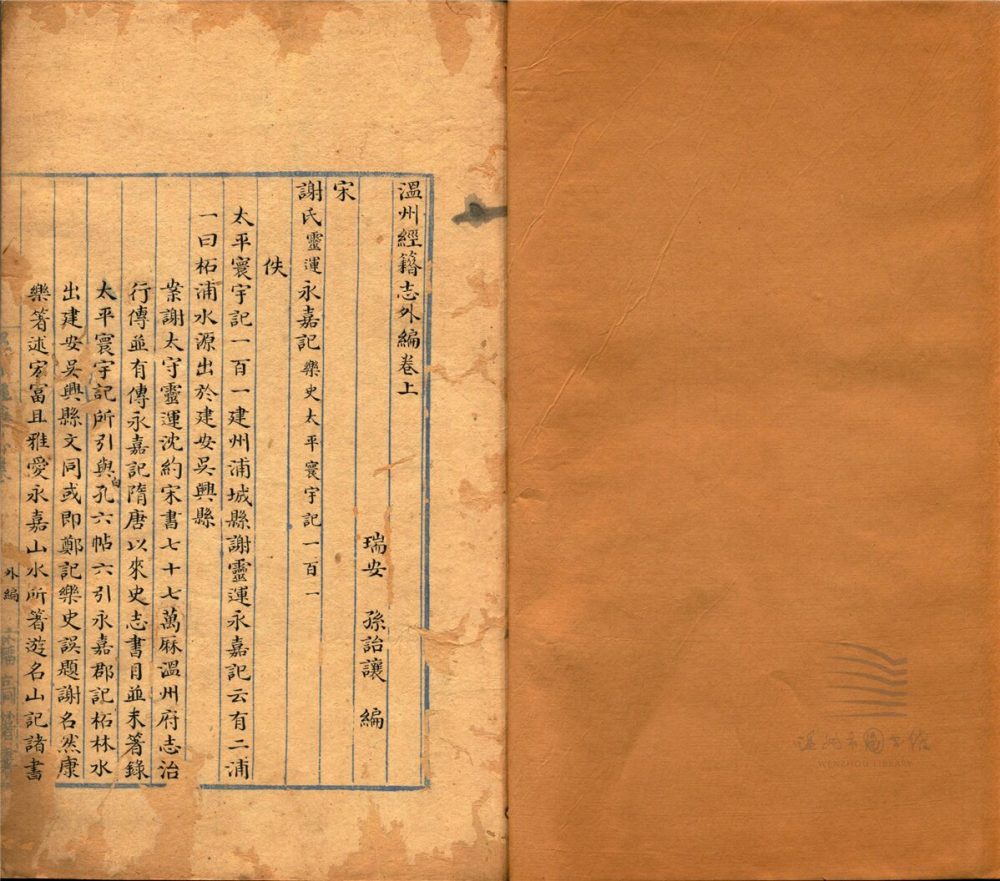 溫州經籍志外編卷上
瑞安 孫詒讓 編
宋
謝氏靈運永嘉記 樂史太平寰宇記一百一
佚
太平寰宇記一百一建州浦城縣謝靈運永嘉記云有二浦
一曰柘浦水源出於建安吳興縣
案謝太守靈運沈約宋書七十七萬厤溫州府志治
行傳並有傳永嘉記隋唐以來史志書目並未著錄
太平寰宇記所引與孔白六帖六引永嘉郡記柘林水
出建安吳興縣文同或即鄭記樂史誤題謝名然康
樂箸述宏富且雅愛永嘉山水所箸遊名山記諸書
外編
溫州市圖書館
WENZHOU LIBRARY